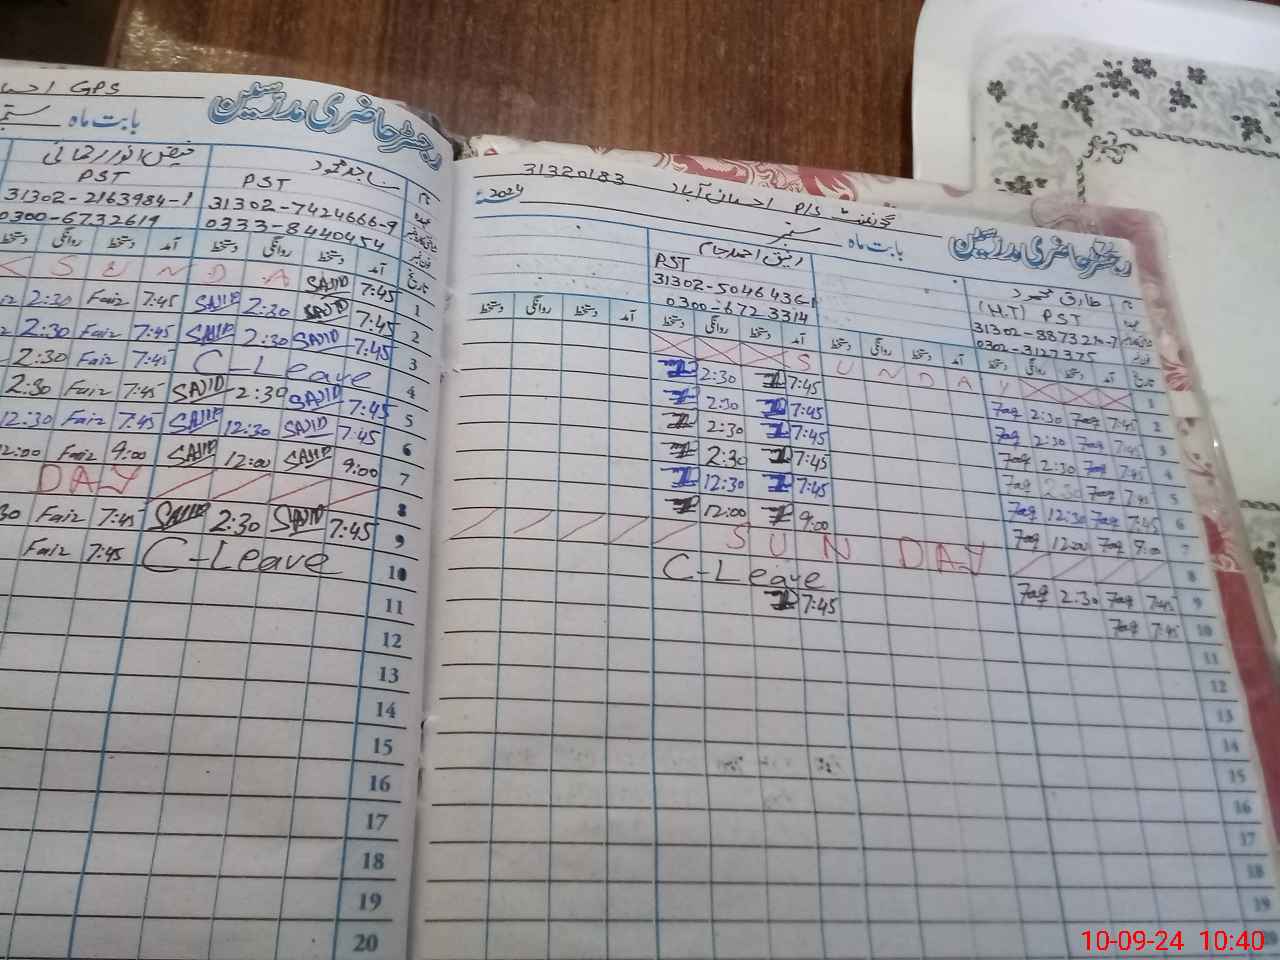 GPS احسا
رجسٹر حاضری مدرسین
بابت ماہ ستمبر
ساجد محمود
PST
31302-7424666-9
0333-8440454
فیض انور رحمانی
PST
31302-2163984-1
0300-6732619
تاریخ آمد دستخط روانگی دستخط آمد دستخط روانگی دستخط
1 7:45 SAJID A D N U S
2 7:45 SAJID 2:30 SAJID 7:45 Faiz 2:30
3 7:45 SAJID 2:30 SAJID 7:45 Faiz 2:30
4 C-Leave 7:45 Faiz 2:30
5 7:45 SAJID 2:30 SAJID 7:45 Faiz 2:30
6 7:45 SAJID 12:30 SAJID 7:45 Faiz 12:30
7 9:00 SAJID 12:00 SAJID 9:00 Faiz 12:00
8 DAY
9 7:45 SAJID 2:30 SAJID 7:45 Faiz 30
10 C-Leave 7:45 Faiz
11
12
13
14
15
16
17
18
19
20
گورنمنٹ P/S احسان آباد 31320183
رجسٹر حاضری مدرسین
بابت ماہ ستمبر 2024
طارق محمود
(H.T) PST
0302-3127375
رفیق احمد جام
PST
31302-5046436-1
0300-6723314
تاریخ آمد دستخط روانگی دستخط آمد دستخط روانگی دستخط آمد دستخط روانگی دستخط آمد دستخط روانگی دستخط
1 S U N D A Y
2 7:45 2:30 7:45 2:30
3 7:45 2:30 7:45 2:30
4 7:45 2:30 7:45 2:30
5 7:45 2:30 7:45 2:30
6 7:45 12:30 7:45 12:30
7 9:00 12:00 9:00 12:00
8 SUN DAY
9 7:45 2:30 C-Leave
10 7:45 7:45
11
12
13
14
15
16
17
18
19
20
10-09-24 10:40